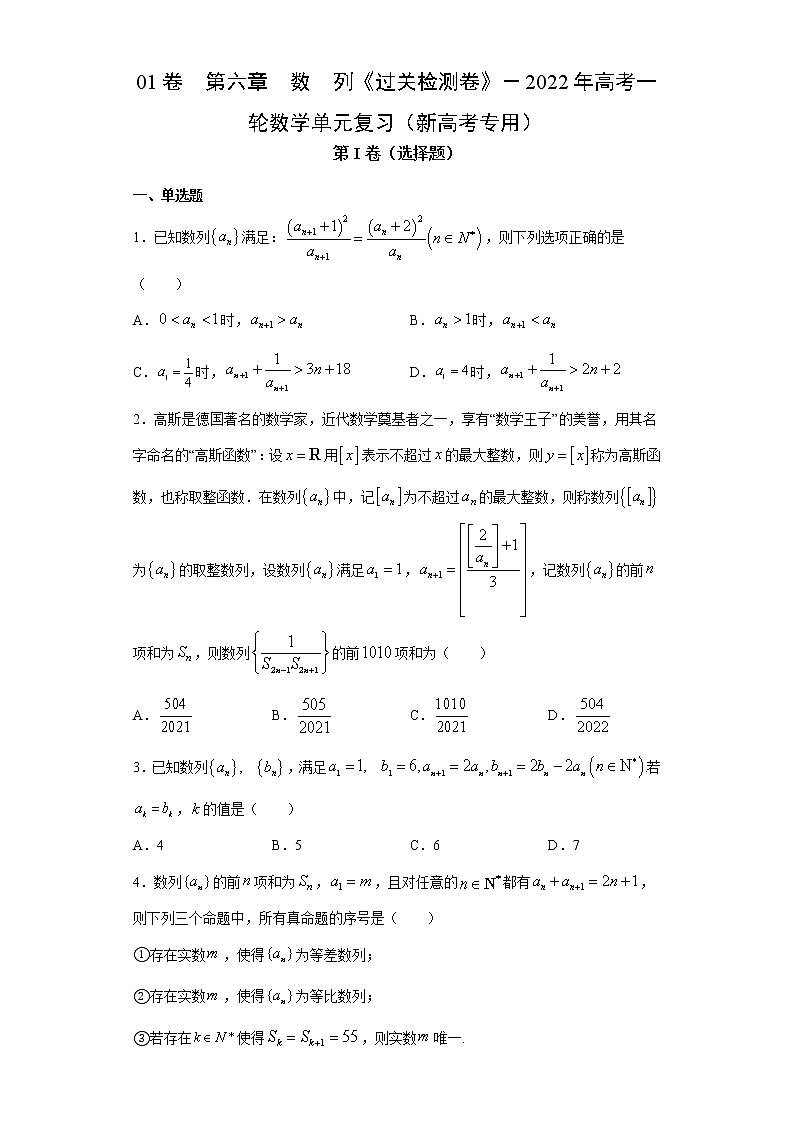 01 卷　第六章　数　列《过关检测卷》－2022 年高考一
轮数学单元复习（新高考专用）
第 I 卷（选择题）
一、单选题
1．已知数列{aₙ}满足：(aₙ₊₁+1)²/aₙ₊₁ = (aₙ+2)²/aₙ (n∈N*)，则下列选项正确的是
（　　）
A．0<aₙ<1时，aₙ₊₁>aₙ　　B．aₙ>1时，aₙ₊₁<aₙ
C．a₁=1/4时，aₙ₊₁+1/aₙ₊₁>3n+18　　D．a₁=4时，aₙ₊₁+1/aₙ₊₁>2n+2
2．高斯是德国著名的数学家，近代数学奠基者之一，享有“数学王子”的美誉，用其名
字命名的“高斯函数”：设x=R用[x]表示不超过x的最大整数，则y=[x]称为高斯函
数，也称取整函数．在数列{aₙ}中，记[aₙ]为不超过aₙ的最大整数，则称数列{[aₙ]}
为{aₙ}的取整数列，设数列{aₙ}满足a₁=1，aₙ₊₁=[([2/aₙ]+1)/3]，记数列{aₙ}的前n
项和为Sₙ，则数列{1/(S₂ₙ₋₁S₂ₙ₊₁)}的前1010项和为（　　）
A．504/2021　　B．505/2021　　C．1010/2021　　D．504/2022
3．已知数列{aₙ}，{bₙ}，满足a₁=1, b₁=6,aₙ₊₁=2aₙ,bₙ₊₁=2bₙ-2aₙ(n∈N*)若
aₖ=bₖ，k的值是（　　）
A．4　　B．5　　C．6　　D．7
4．数列{aₙ}的前n项和为Sₙ，a₁=m，且对任意的n∈N*都有aₙ+aₙ₊₁=2n+1，
则下列三个命题中，所有真命题的序号是（　　）
①存在实数m，使得{aₙ}为等差数列；
②存在实数m，使得{aₙ}为等比数列；
③若存在k∈N*使得Sₖ=Sₖ₊₁=55，则实数m唯一.